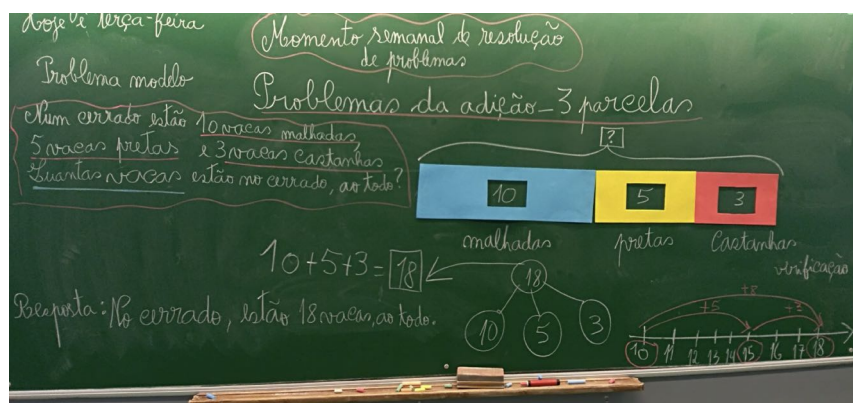 Hoje é terça-feira
Momento semanal de resolução
de problemas
Problema modelo
Problemas da adição - 3 parcelas
Num cerrado estão 10 vacas malhadas,
5 vacas pretas e 3 vacas castanhas
Quantas vacas estão no cerrado, ao todo?
?
10 5 3
malhadas pretas Castanhas
10+5+3=18
18
10 5 3
Resposta: No cerrado, estão 18 vacas, ao todo.
verificação
+8
+5
10 11 12 13 14 15 16 17 18